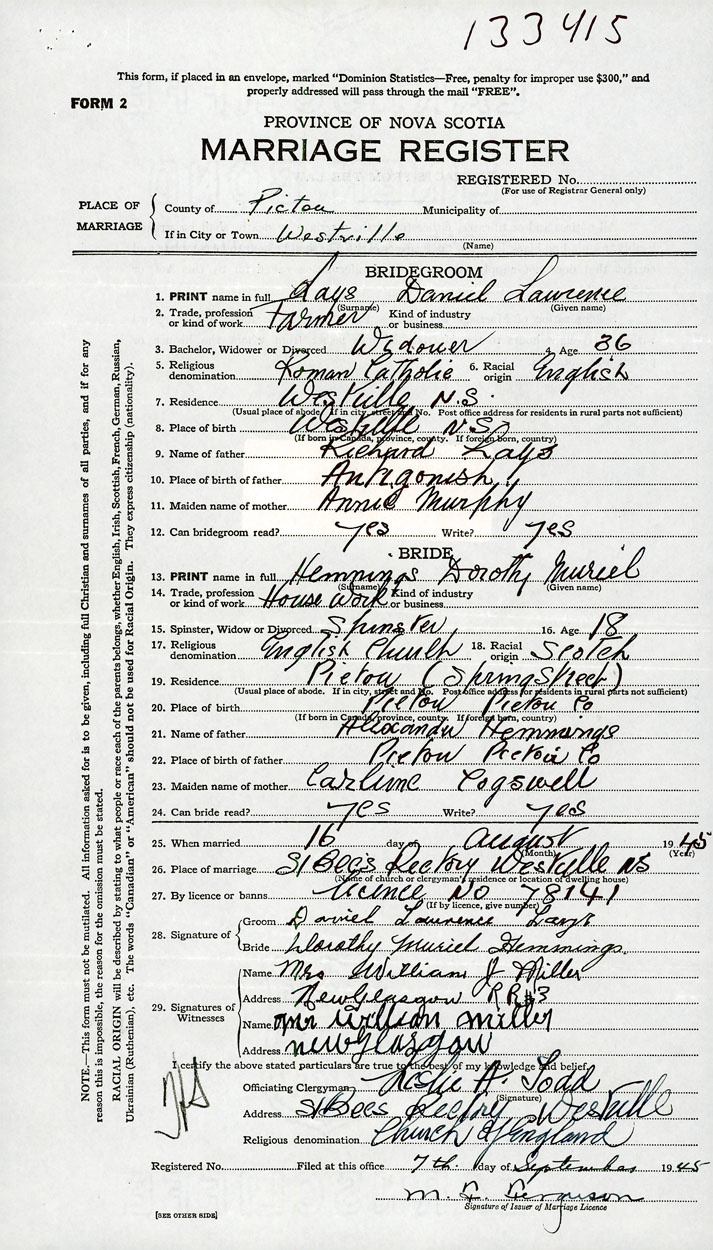 133415
This form, if placed in an envelope, marked "Dominion Statistics—Free, penalty for improper use $300," and
properly addressed will pass through the mail "FREE".
FORM 2
PROVINCE OF NOVA SCOTIA
MARRIAGE REGISTER
REGISTERED No.
(For use of Registrar General only)
PLACE OF MARRIAGE
County of Pictou Municipality of
If in City or Town Westville
(Name)
BRIDEGROOM
1. PRINT name in full Lays Daniel Lawrence
(Surname) (Given name)
2. Trade, profession or kind of work Farmer Kind of industry or business
3. Bachelor, Widower or Divorced Widower 4. Age 36
5. Religious denomination Roman Catholic 6. Racial origin English
7. Residence Westville N.S.
(Usual place of abode. If in city, street and No. Post office address for residents in rural parts not sufficient)
8. Place of birth Westville N.S.
(If born in Canada, province, county. If foreign born, country)
9. Name of father Richard Lays
10. Place of birth of father Antigonish
11. Maiden name of mother Annie Murphy
12. Can bridegroom read? yes Write? yes
BRIDE
13. PRINT name in full Hemmings Dorothy Muriel
(Surname) (Given name)
14. Trade, profession or kind of work House Work Kind of industry or business
15. Spinster, Widow or Divorced Spinster 16. Age 18
17. Religious denomination English Church 18. Racial origin Scotch
19. Residence Pictou (Spring Street)
(Usual place of abode. If in city, street and No. Post office address for residents in rural parts not sufficient)
20. Place of birth Pictou Pictou Co
(If born in Canada, province, county. If foreign born, country)
21. Name of father Alexander Hemmings
22. Place of birth of father Pictou Pictou Co
23. Maiden name of mother Carline Cogswell
24. Can bride read? yes Write? yes
25. When married 16 day of August 1945
(Month) (Year)
26. Place of marriage St Bee's Rectory Westville NS
(Name of church or clergyman's residence or location of dwelling house)
27. By licence or banns Licence No 78141
(If by licence, give number)
28. Signature of
Groom Daniel Laurence Lays
Bride Dorothy Muriel Hemmings
29. Signatures of Witnesses
Name Mrs William J Miller
Address New Glasgow RR#3
Name Mr William Miller
Address New Glasgow
I certify the above stated particulars are true to the best of my knowledge and belief.
Officiating Clergyman Leslie A. Todd
(Signature)
Address St Bee's Rectory Westville
Religious denomination Church of England
Registered No. Filed at this office 7th day of September 1945
M. L. Ferguson
Signature of Issuer of Marriage Licence
[SEE OTHER SIDE]
NOTE.—This form must not be mutilated. All information asked for is to be given, including full Christian and surnames of all parties, and if for any
reason this is impossible, the reason for the omission must be stated.
RACIAL ORIGIN will be described by stating to what people or race each of the parents belongs, whether English, Irish, Scottish, French, German, Russian,
Ukrainian (Ruthenian), etc. The words "Canadian" or "American" should not be used for Racial Origin. They express citizenship (nationality).